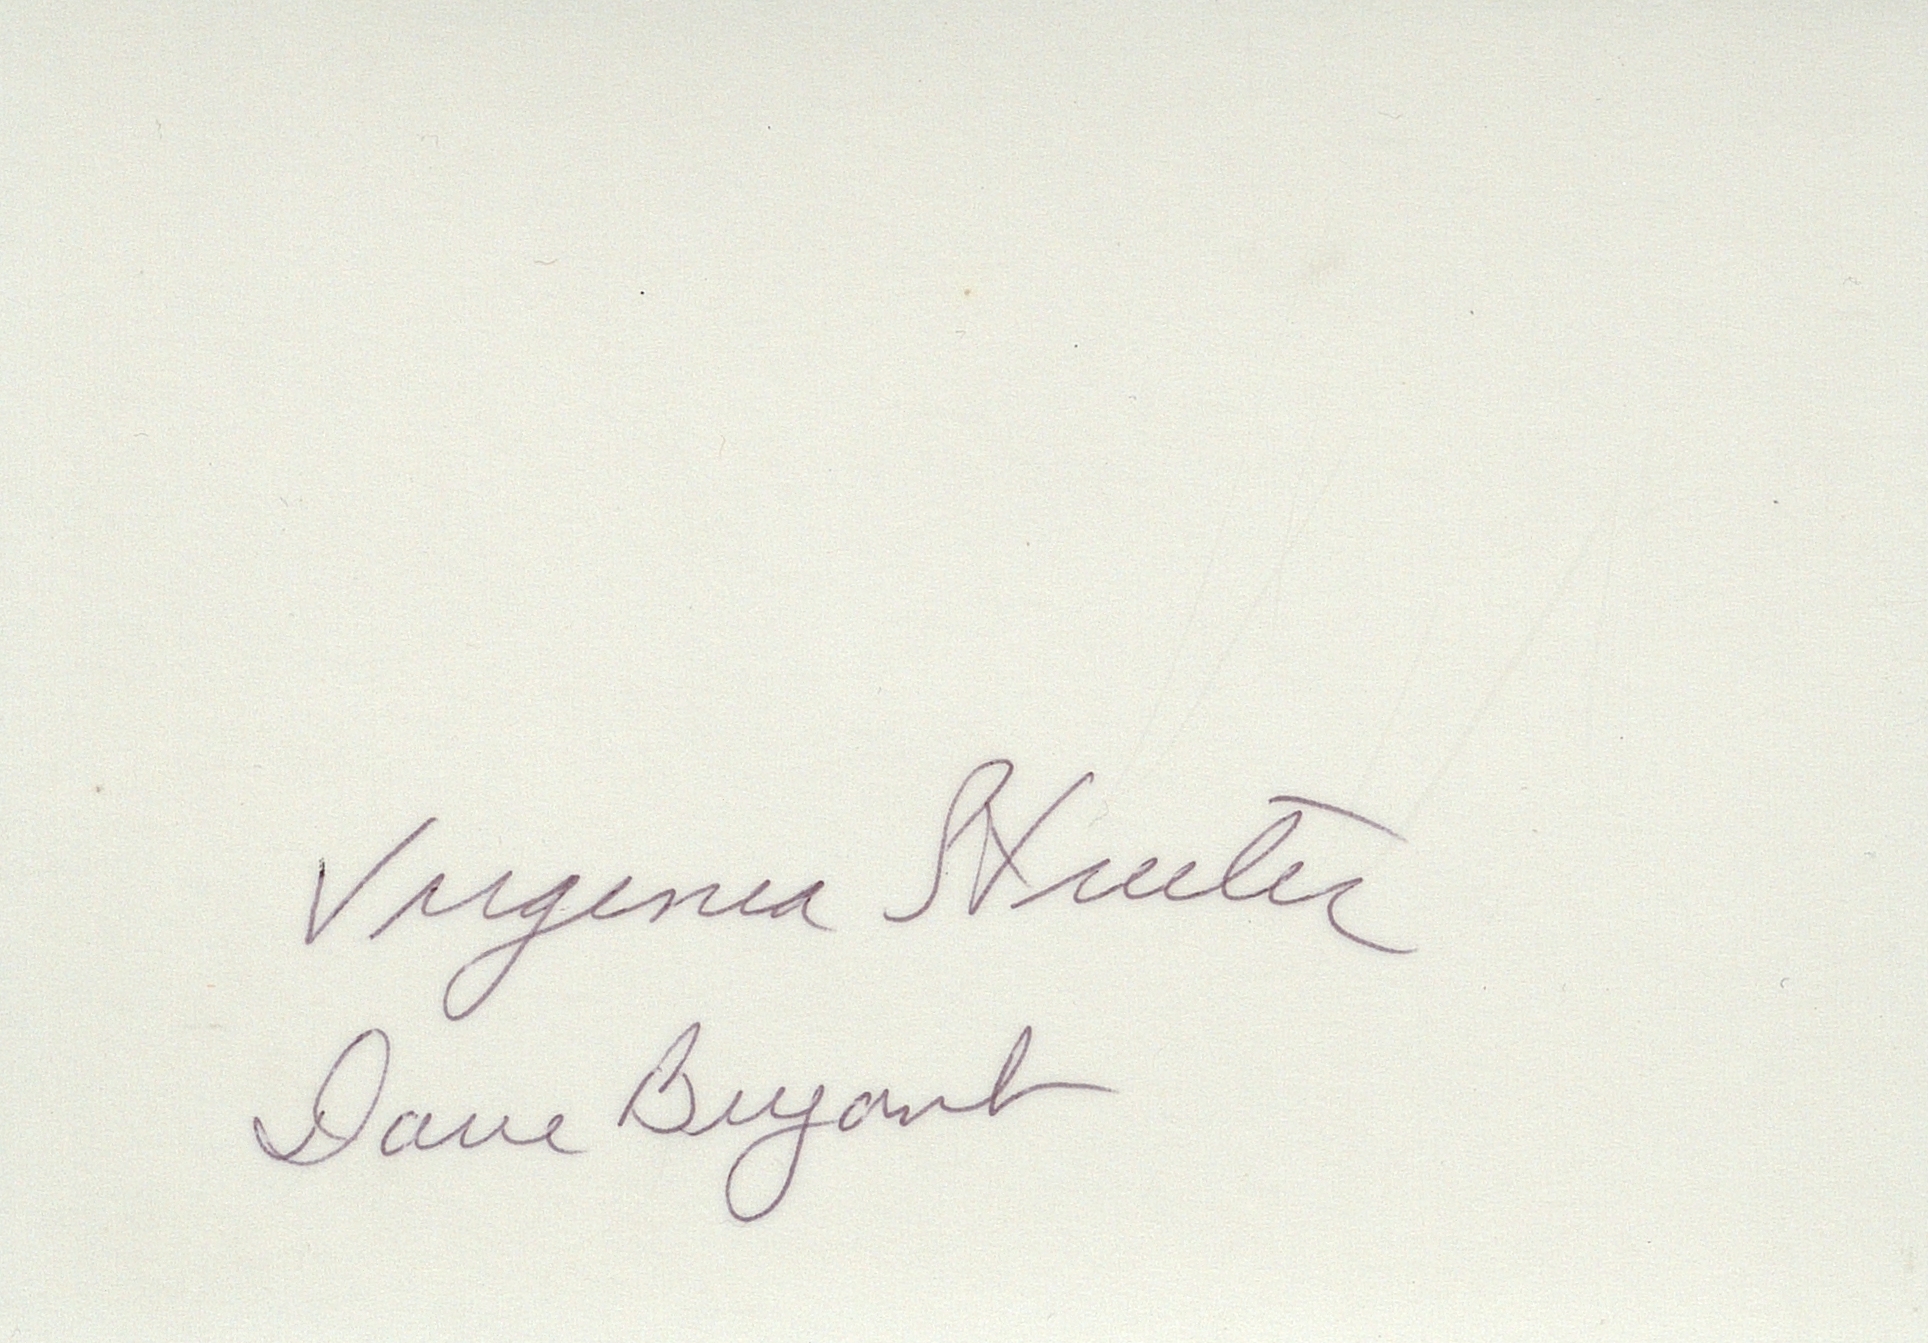 Virginia Streeter
Dave Bryant